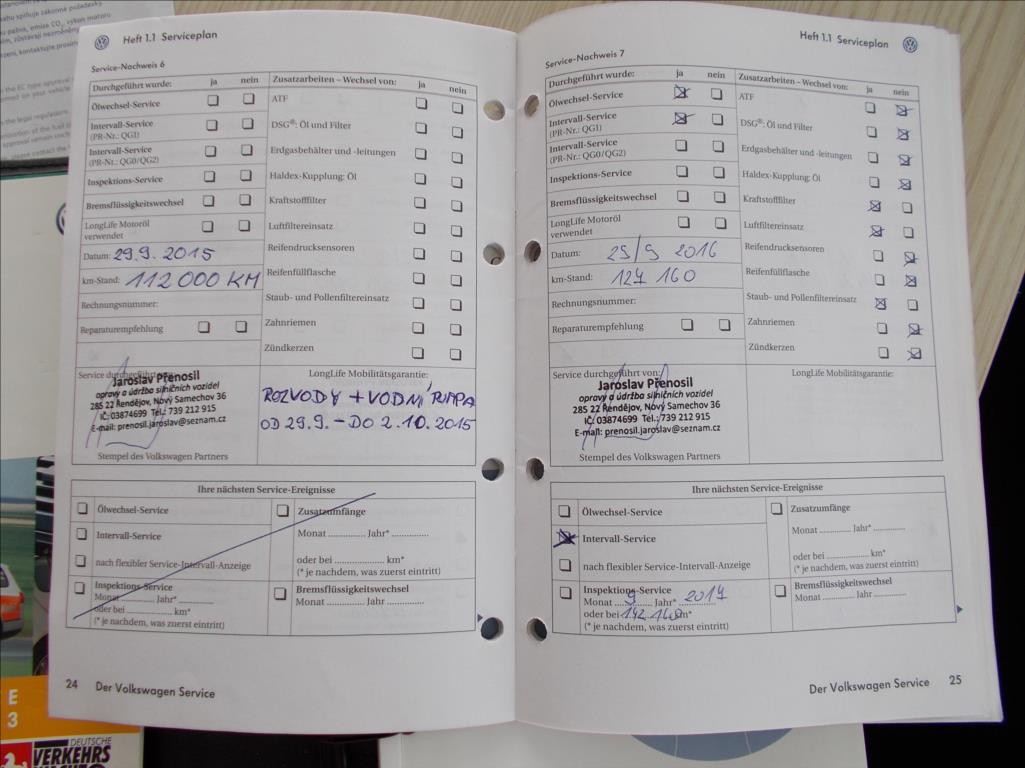 sahu splňuje zákonné požadavky.
Heft 1.1 Serviceplan
Service-Nachweis 6
Durchgeführt wurde: ja nein
Zusatzarbeiten – Wechsel von: ja nein
Ölwechsel-Service
ATF
Intervall-Service
(PR-Nr.: QG1)
DSG®: Öl und Filter
Intervall-Service
(PR-Nr.: QG0/QG2)
Erdgasbehälter und -leitungen
Inspektions-Service
Haldex-Kupplung: Öl
Bremsflüssigkeitswechsel
Kraftstofffilter
LongLife Motoröl
verwendet
Luftfiltereinsatz
Datum: 29.9. 2015
Reifendrucksensoren
km-Stand: 112 000 KM
Reifenfüllflasche
Rechnungsnummer:
Staub- und Pollenfiltereinsatz
Reparaturempfehlung
Zahnriemen
Zündkerzen
Service durchgeführt von:
LongLife Mobilitätsgarantie:
Jaroslav Přenosil
opravy a údržba silničních vozidel
285 22 Řendějov, Nový Samechov 36
IČ: 03874699 Tel.: 739 212 915
E-mail: prenosil.jaroslav@seznam.cz
ROZVODY + VODNÍ PUMPA
OD 29.9. – DO 2.10.2015
Stempel des Volkswagen Partners
Ihre nächsten Service-Ereignisse
Ölwechsel-Service
Zusatzumfänge
Intervall-Service
Monat ............. Jahr* ...............
nach flexibler Service-Intervall-Anzeige
oder bei .................... km*
(* je nachdem, was zuerst eintritt)
Inspektions-Service
Monat ............. Jahr* ...............
oder bei .................... km*
(* je nachdem, was zuerst eintritt)
Bremsflüssigkeitswechsel
Monat ............. Jahr ...............
24 Der Volkswagen Service
Heft 1.1 Serviceplan
Service-Nachweis 7
Durchgeführt wurde: ja nein
Zusatzarbeiten – Wechsel von: ja nein
Ölwechsel-Service
ATF
Intervall-Service
(PR-Nr.: QG1)
DSG®: Öl und Filter
Intervall-Service
(PR-Nr.: QG0/QG2)
Erdgasbehälter und -leitungen
Inspektions-Service
Haldex-Kupplung: Öl
Bremsflüssigkeitswechsel
Kraftstofffilter
LongLife Motoröl
verwendet
Luftfiltereinsatz
Datum: 25/9 2016
Reifendrucksensoren
km-Stand: 127 160
Reifenfüllflasche
Rechnungsnummer:
Staub- und Pollenfiltereinsatz
Reparaturempfehlung
Zahnriemen
Zündkerzen
Service durchgeführt von:
LongLife Mobilitätsgarantie:
Jaroslav Přenosil
opravy a údržba silničních vozidel
285 22 Řendějov, Nový Samechov 36
IČ: 03874699 Tel.: 739 212 915
E-mail: prenosil.jaroslav@seznam.cz
Stempel des Volkswagen Partners
Ihre nächsten Service-Ereignisse
Ölwechsel-Service
Zusatzumfänge
Intervall-Service
Monat ............. Jahr* ...............
nach flexibler Service-Intervall-Anzeige
oder bei .................... km*
(* je nachdem, was zuerst eintritt)
Inspektions-Service
Monat 9 Jahr* 2017
oder bei 142 160 km*
(* je nachdem, was zuerst eintritt)
Bremsflüssigkeitswechsel
Monat ............. Jahr ...............
Der Volkswagen Service 25
E
3
DEUTSCHE
VERKEHRS